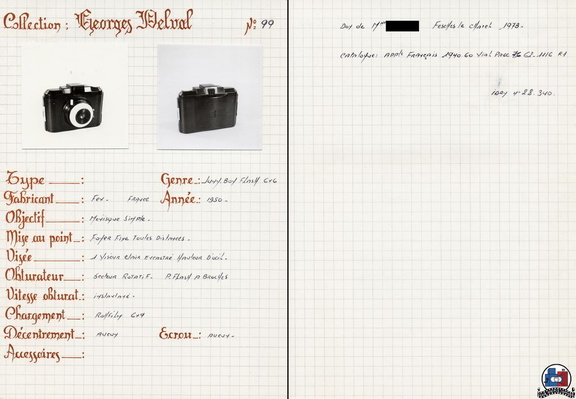 Collection : Georges Delval N° 99
Type : Genre : Juny. Boy Flash 6x6
Fabricant : Fex. France Année : 1950.
Objectif : Menisque Simple.
Mise au point : Foyer Fixe Toutes Distances.
Visée : 1 Viseur Clair Encastré Hauteur D'oeil.
Obturateur : Secteur Rotatif. P. Flash A Broches
Vitesse obturat. : instantané.
Chargement : Rollfilm 6x9
Décentrement : aucun Ecrou : aucun.
Accessoires :
Don de Mme Fesches le Chatel 1978.
Catalogue: Appts Français 1940.60 Vial Page 76 G2. 1116 R1
idey n° 28.340.